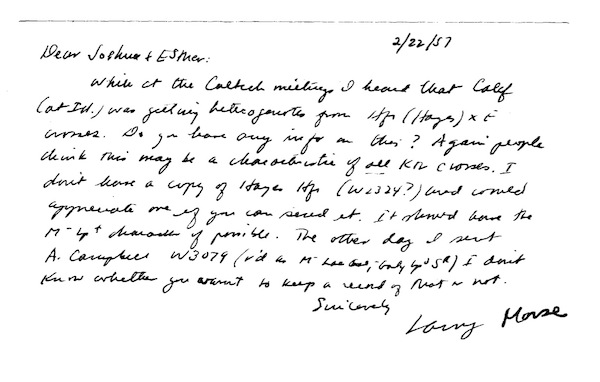 2/22/57
Dear Joshua & Esther:
While at the Caltech meetings I heard that Calef
(at Ill.) was getting heterogenotes from Hfr (Hayes) x F⁻
crosses. Do you have any info on this? Again people
think this may be a characteristic of all K12 crosses. I
don't have a copy of Hayes Hfr (W2324?) and would
appreciate one if you can send it. It should have the
M⁻ Lp⁺ character if possible. The other day I sent
A. Campbell W3079 (r'd as M⁻ Lp S^R) I don't
know whether you want to keep a record of that or not.
Sincerely
Larry Morse